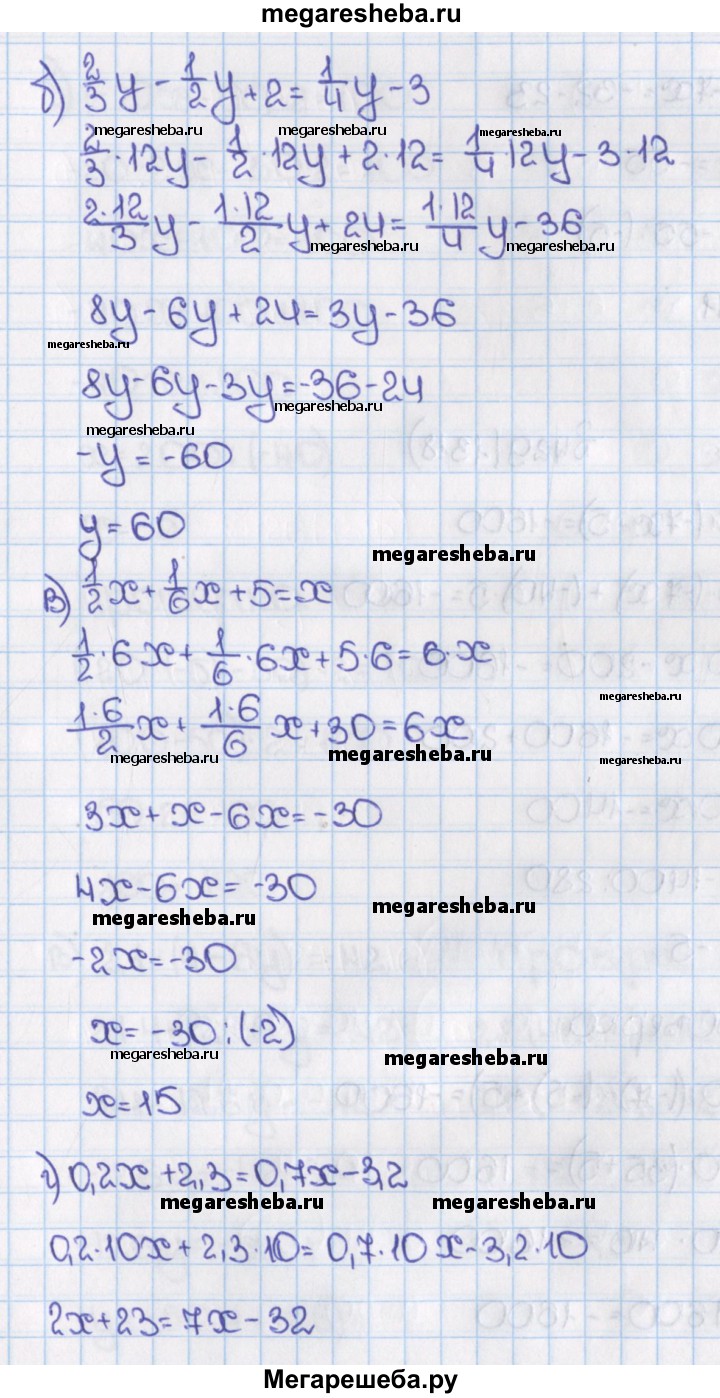 megaresheba.ru
б) 2/3 y - 1/2 y + 2 = 1/4 y - 3
megaresheba.ru megaresheba.ru megaresheba.ru
2/3 · 12y - 1/2 · 12y + 2 · 12 = 1/4 · 12y - 3 · 12
2·12/3 y - 1·12/2 y + 24 = 1·12/4 y - 36
megaresheba.ru megaresheba.ru megaresheba.ru
8y - 6y + 24 = 3y - 36
megaresheba.ru
8y - 6y - 3y = -36 - 24
megaresheba.ru
megaresheba.ru
-y = -60
y = 60
megaresheba.ru
в) 1/2 x + 1/6 x + 5 = x
1/2 · 6x + 1/6 · 6x + 5 · 6 = 6 · x
megaresheba.ru
1·6/2 x + 1·6/6 x + 30 = 6x
megaresheba.ru megaresheba.ru megaresheba.ru
3x + x - 6x = -30
4x - 6x = -30
megaresheba.ru megaresheba.ru
-2x = -30
x = -30 : (-2)
megaresheba.ru megaresheba.ru
x = 15
г) 0,2x + 2,3 = 0,7x - 3,2
megaresheba.ru megaresheba.ru
0,2 · 10x + 2,3 · 10 = 0,7 · 10x - 3,2 · 10
2x + 23 = 7x - 32
Мегарешеба.ру